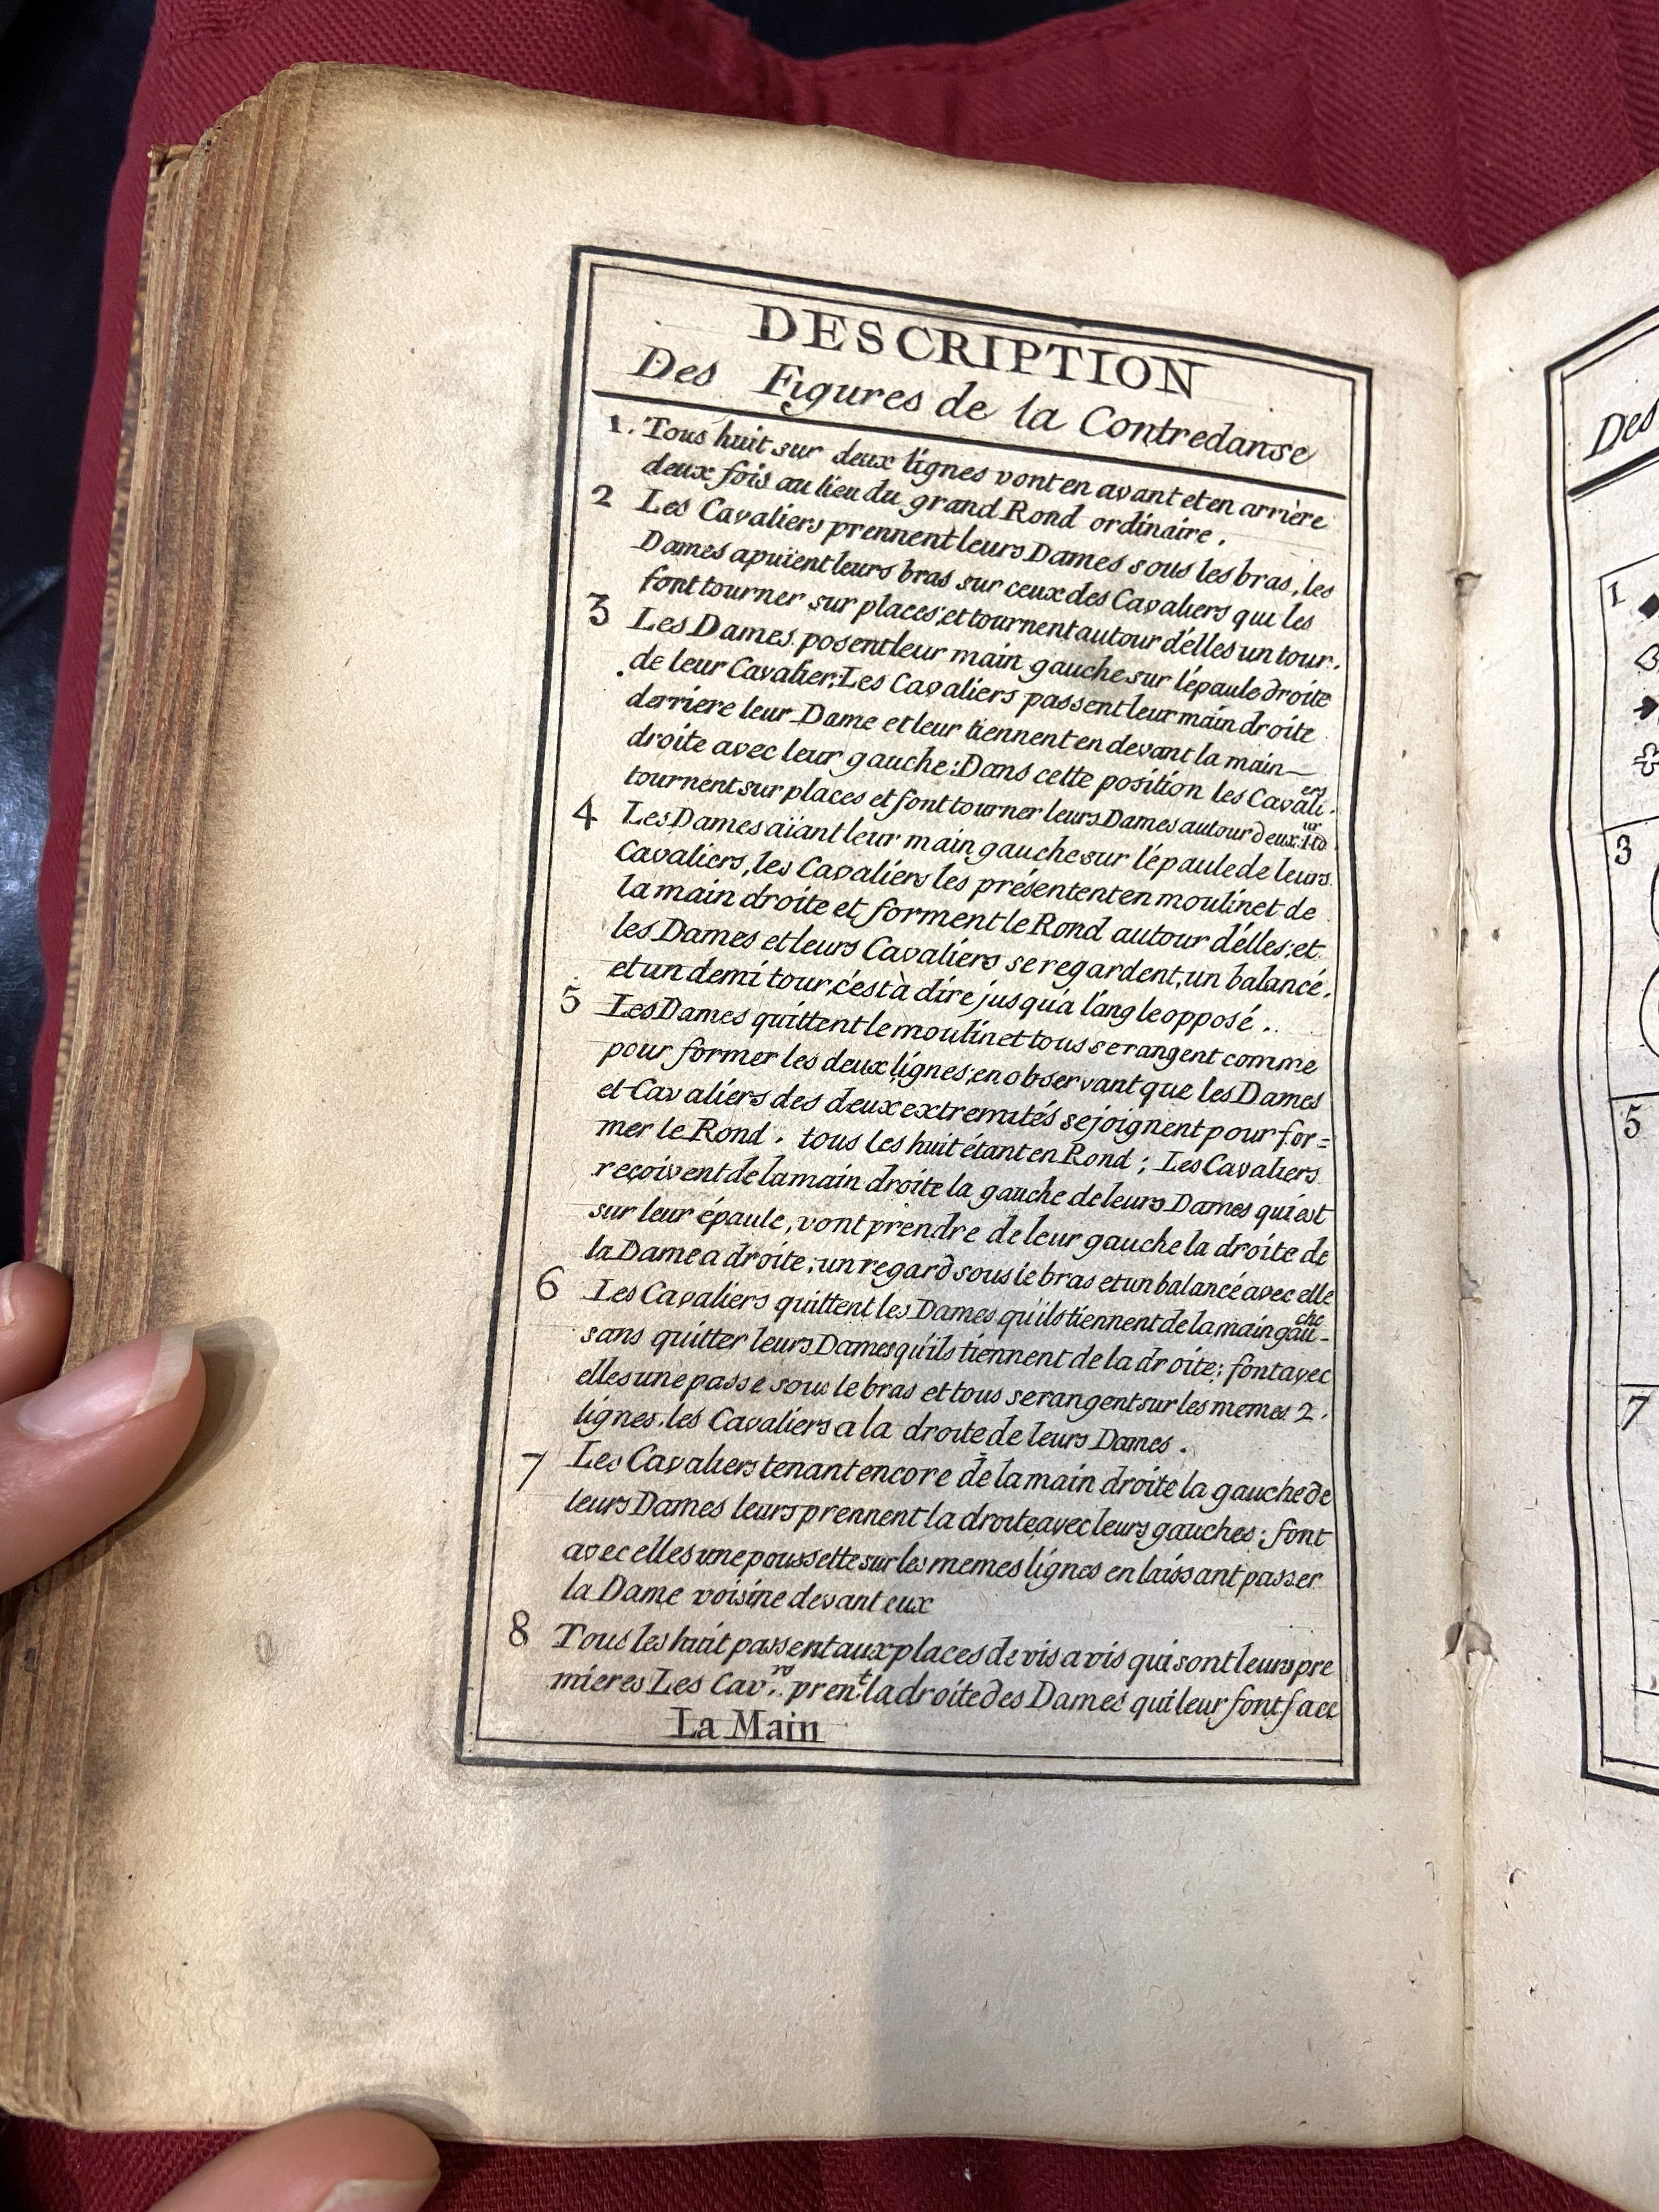 DESCRIPTION
Des Figures de la Contredanse
1. Tous huit sur deux lignes vont en avant et en arrière
deux fois au lieu du grand Rond ordinaire.
2 Les Cavaliers prennent leurs Dames sous les bras, les
Dames apuïent leurs bras sur ceux des Cavaliers qui les
font tourner sur places, et tournent autour d'elles un tour.
3 Les Dames posent leur main gauche sur l'épaule droite
de leur Cavalier; Les Cavaliers passent leur main droite
derriere leur Dame et leur tiennent en devant la main
droite avec leur gauche: Dans cette position les Cavali.ers
tournent sur places et font tourner leurs Dames autour deux
4 Les Dames aïant leur main gauche sur l'épaule de leurs
Cavaliers, les Cavaliers les présentent en moulinet de
la main droite et forment le Rond autour d'elles; et
les Dames et leurs Cavaliers se regardent, un balancé.
et un demi tour, c'est à dire jusqu'a l'angle opposé.
5 Les Dames quittent le moulinet tous se rangent comme
pour former les deux lignes, en observant que les Dames
et Cavaliers des deux extremités se joignent pour for=
mer le Rond. tous les huit étant en Rond; Les Cavaliers
reçoivent de la main droite la gauche de leurs Dames qui est
sur leur épaule, vont prendre de leur gauche la droite de
la Dame a droite; un regard sous le bras et un balancé avec elle
6 Les Cavaliers quittent les Dames qu'ils tiennent de la main gau-che
sans quitter leurs Dames qu'ils tiennent de la droite; font avec
elles une passe sous le bras et tous se rangent sur les memes 2.
lignes. les Cavaliers a la droite de leurs Dames.
7 Les Cavaliers tenant encore de la main droite la gauche de
leurs Dames leurs prennent la droite avec leurs gauches; font
avec elles une poussette sur les memes lignes en laissant passer
la Dame voisine devant eux
8 Tous les huit passent aux places de vis a vis qui sont leurs pre
mieres Les Cav.rs pren.t la droite des Dames qui leur font face
La Main
Des
1
3
5
7